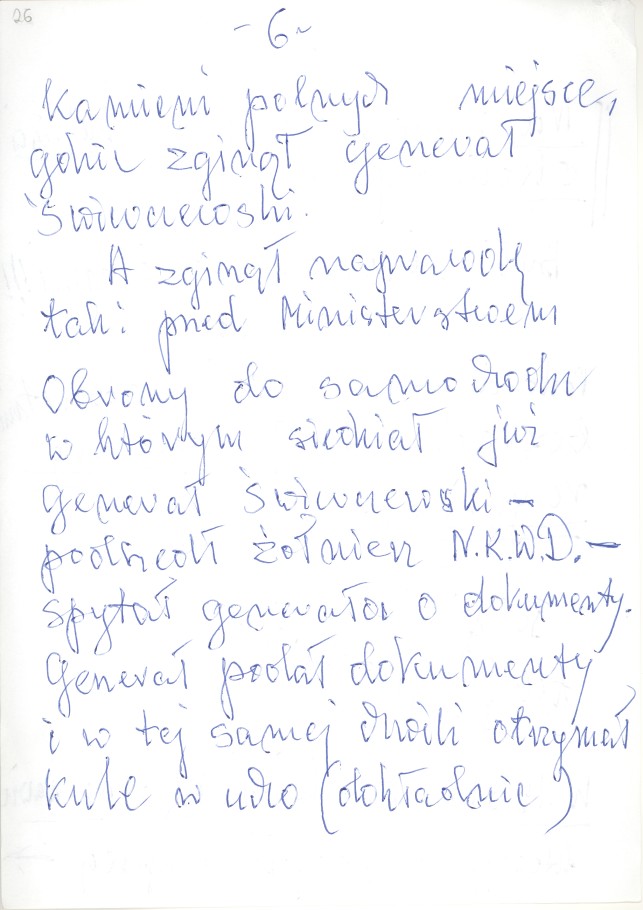 26
- 6 -
Kamieni polnych miejsce,
gdzie zginął generał
Świerczewski.
A zginął naprawdę
tak: przed Ministerstwem
Obrony do samochodu
w którym siedział już
generał Świerczewski –
podszedł żołnierz N.K.W.D. –
spytał generała o dokumenty.
Generał podał dokumenty
i w tej samej chwili otrzymał
kulę w ucho (dokładnie)